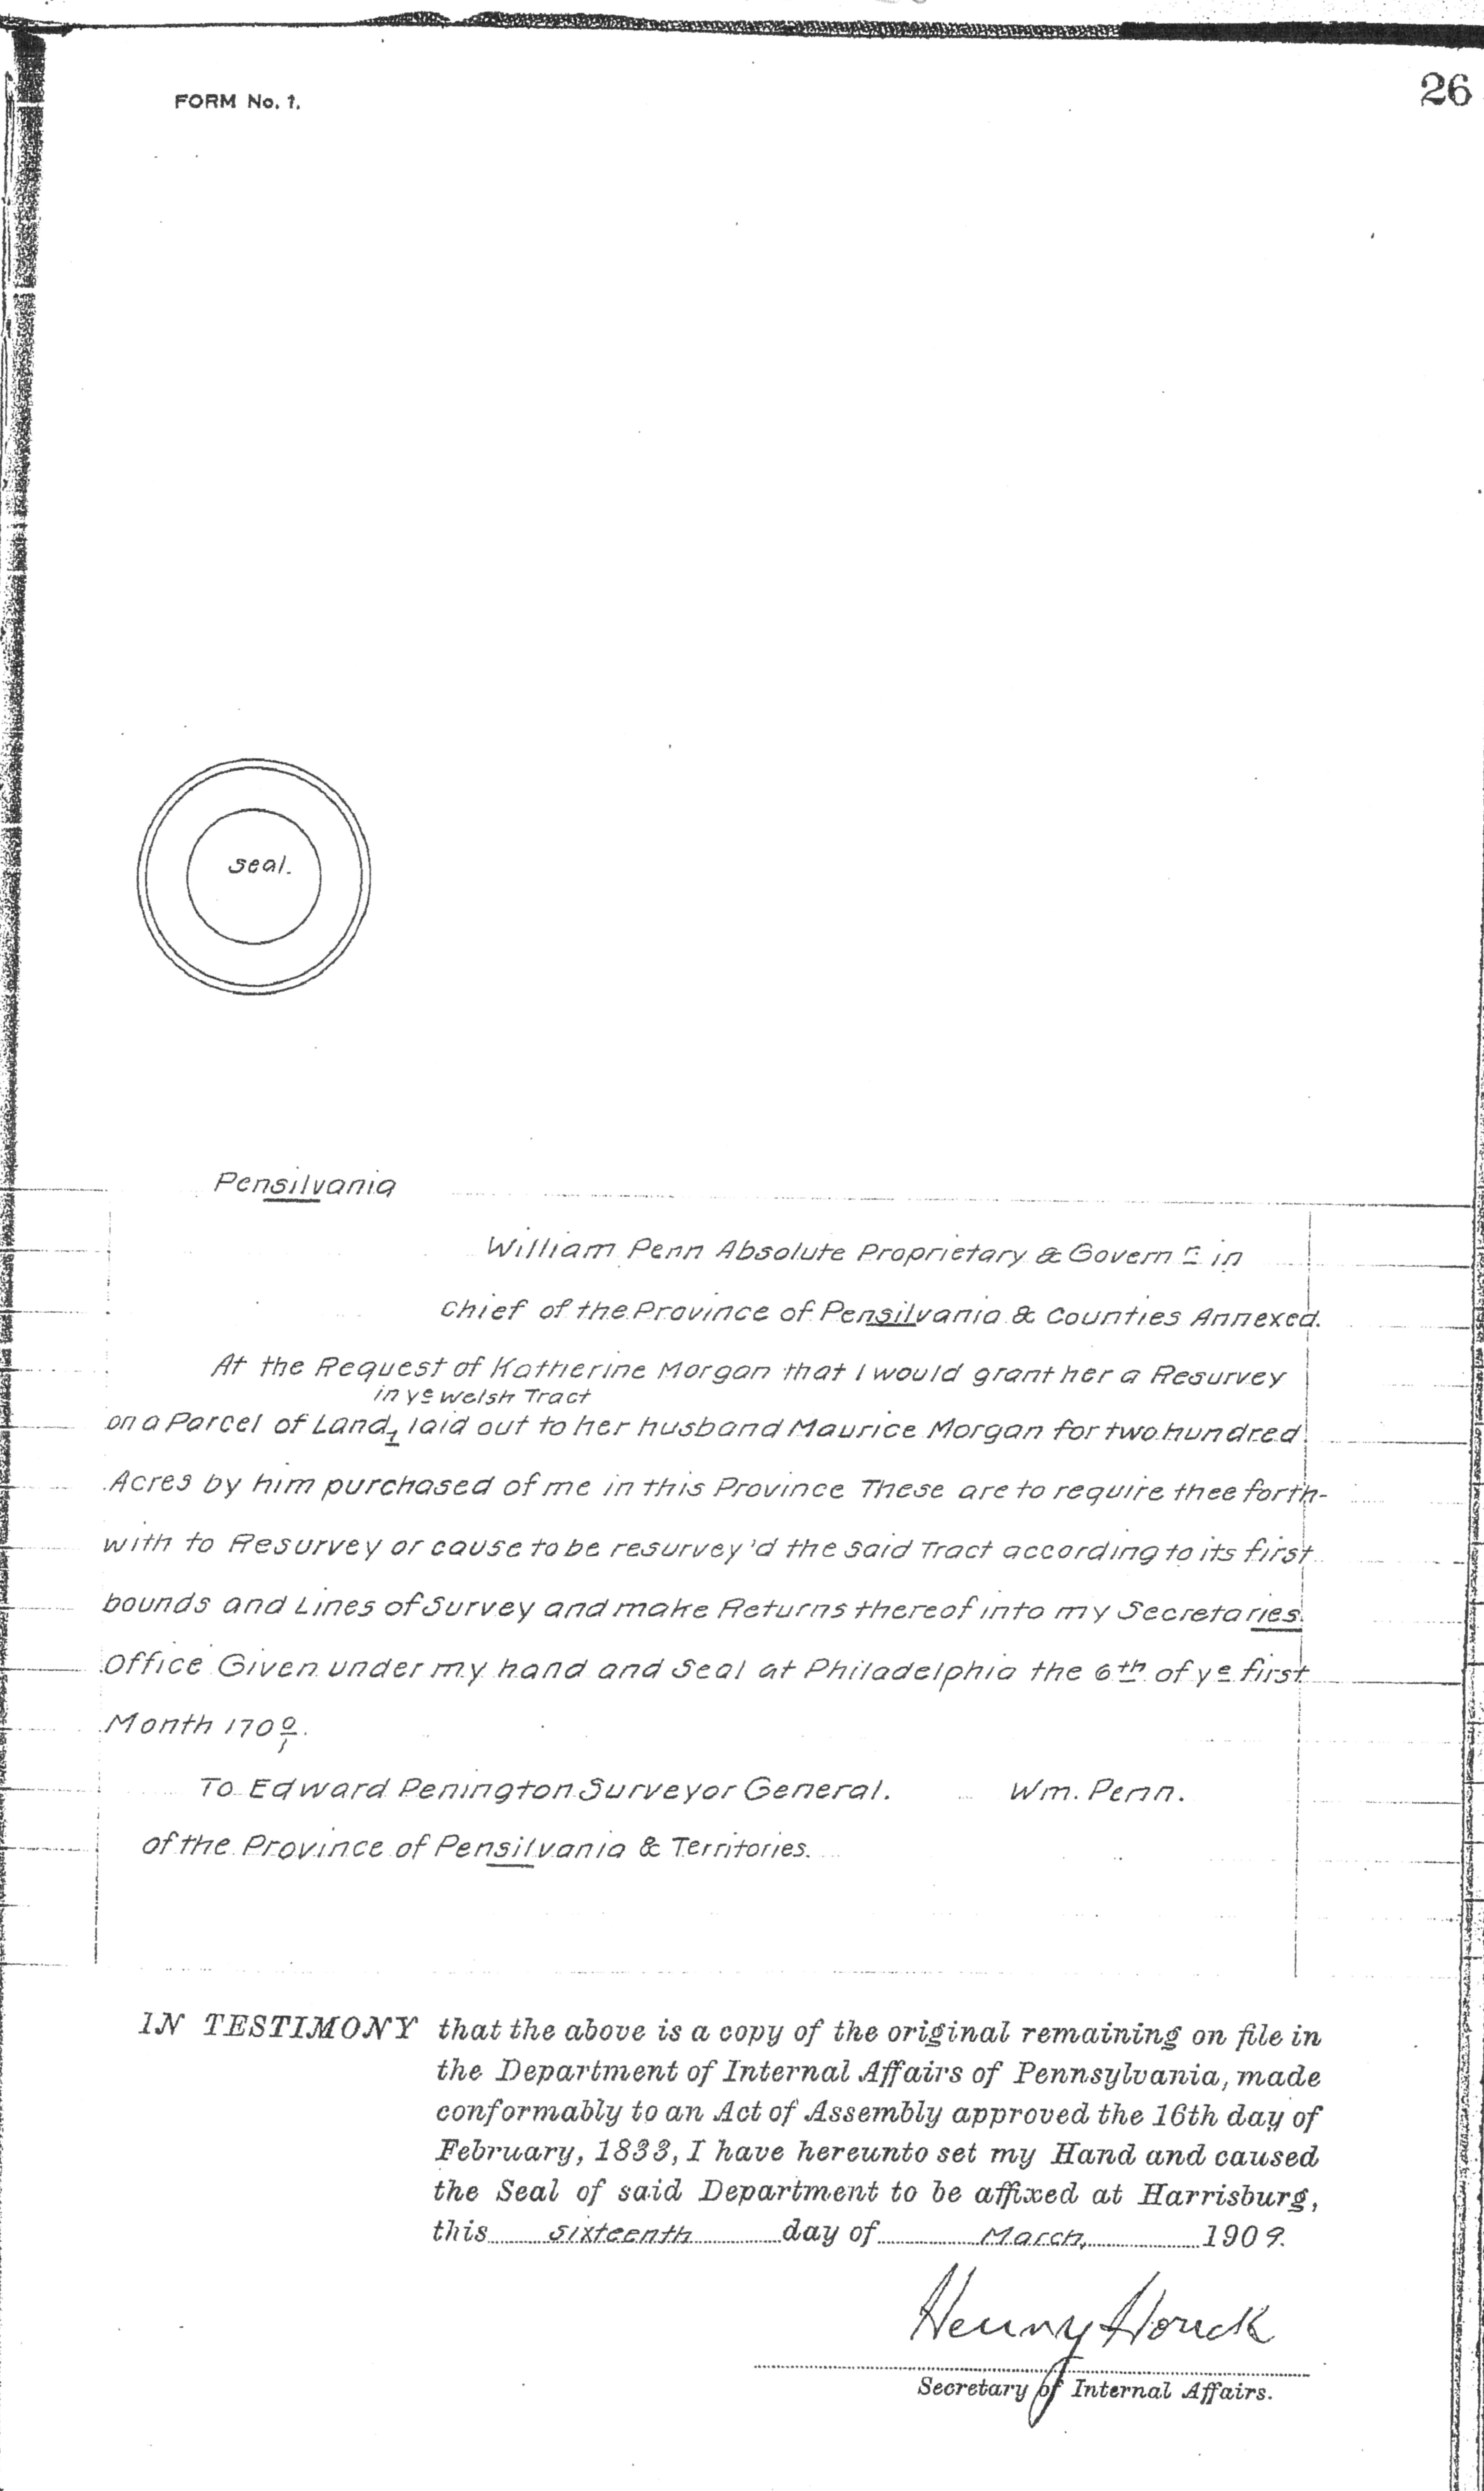 FORM No. 1.
26
seal.
Pensilvania
William Penn Absolute Proprietary & Govern r in
Chief of the Province of Pensilvania & Counties Annexed.
At the Request of Katherine Morgan that I would grant her a Resurvey
in ye Welsh Tract
on a Parcel of Land, laid out to her husband Maurice Morgan for two hundred
Acres by him purchased of me in this Province These are to require thee forth-
with to Resurvey or cause to be resurvey'd the said Tract according to its first
bounds and Lines of Survey and make Returns thereof into my Secretaries
Office Given under my hand and Seal at Philadelphia the 6th of ye first
Month 170 0/1.
To Edward Penington Surveyor General. Wm. Penn.
of the Province of Pensilvania & Territories.
IN TESTIMONY that the above is a copy of the original remaining on file in
the Department of Internal Affairs of Pennsylvania, made
conformably to an Act of Assembly approved the 16th day of
February, 1833, I have hereunto set my Hand and caused
the Seal of said Department to be affixed at Harrisburg,
this sixteenth day of March, 1909.
Henry Houck
Secretary of Internal Affairs.